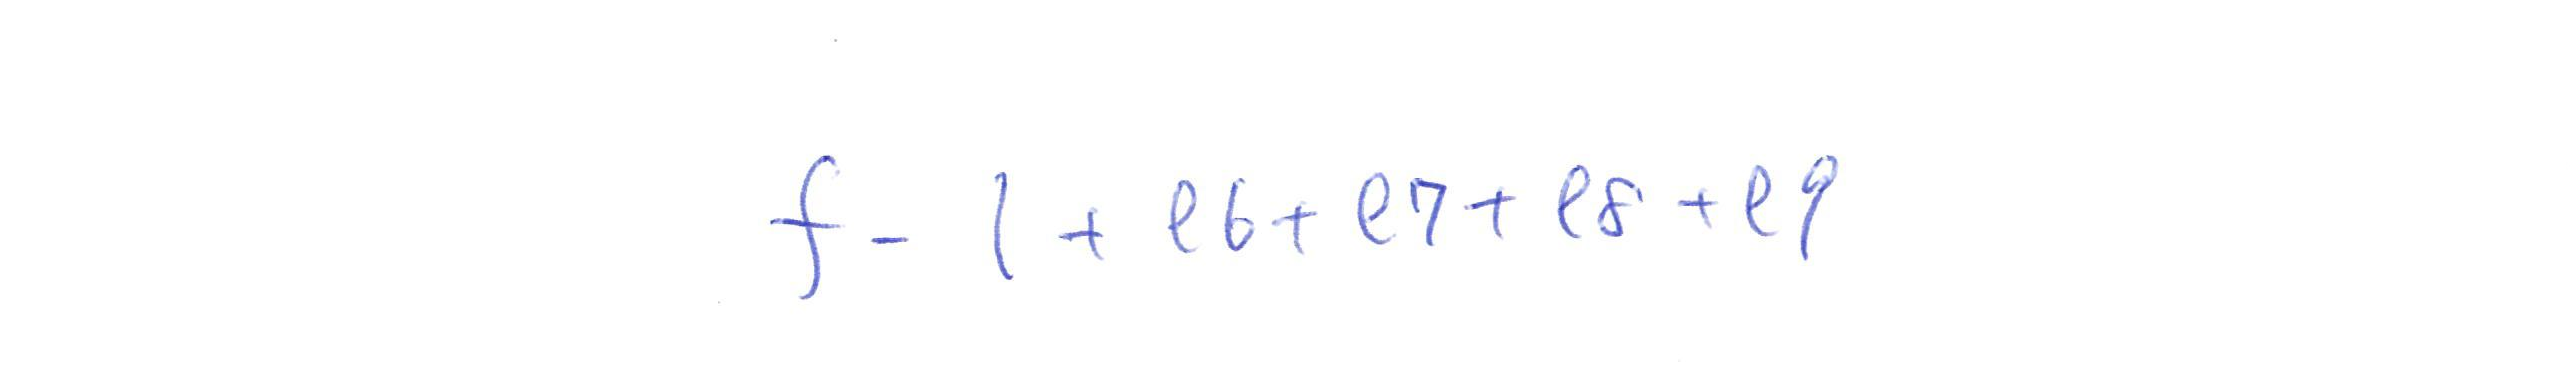 f - l + e6 + e7 + e8 + e9